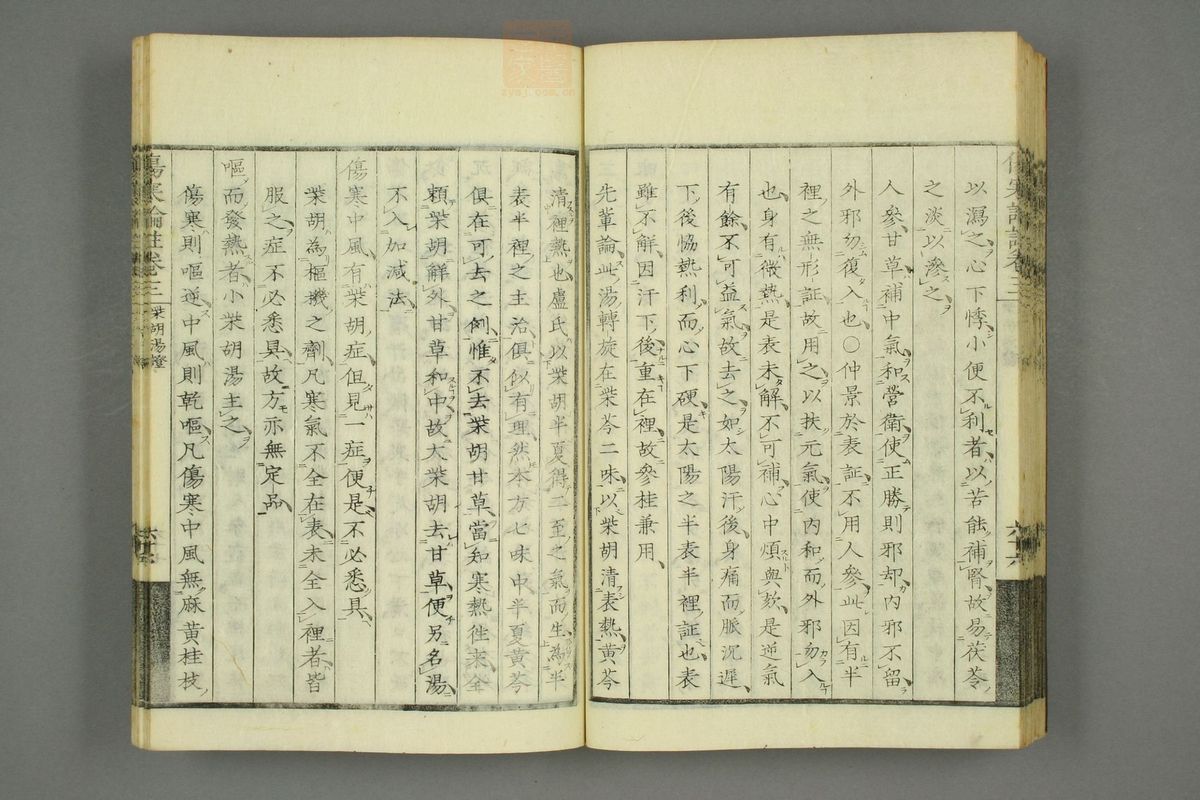 以瀉之心下悸小便不利者以苦能補腎故易茯苓
之淡以滲之
人參甘草補中氣和營衛使正勝則邪却內邪不留
外邪勿復入也〇仲景於表証不用人參此因有半
裡之無形証故用之以扶元氣使內和而外邪勿入
也身有微熱是表未解不可補心中煩與欬是逆氣
有餘不可益氣故去之如太陽汗後身痛而脈沉遲
下後恊熱利而心下硬是太陽之半表半裡証也表
雖不解因汗下後重在裡故參桂兼用
先輩論此湯轉旋在柴芩二味以柴胡清表熱黃芩
清裡熱也盧氏以柴胡半夏得二至之氣而生為半
表半裡之主治俱似有理然本方七味中半夏黃芩
俱在可去之例惟不去柴胡甘草當知寒熱徃來全
頼柴胡解外甘草和中故大柴胡去甘草便另名湯
不入加減法
傷寒中風有柴胡症但見一症便是不必悉具
柴胡為樞機之劑凡寒氣不全在表未全入裡者皆
服之症不必悉具故方亦無定品
嘔而發熱者小柴胡湯主之
傷寒則嘔逆中風則乾嘔凡傷寒中風無麻黃桂枝
傷寒論註卷三 柴胡湯證